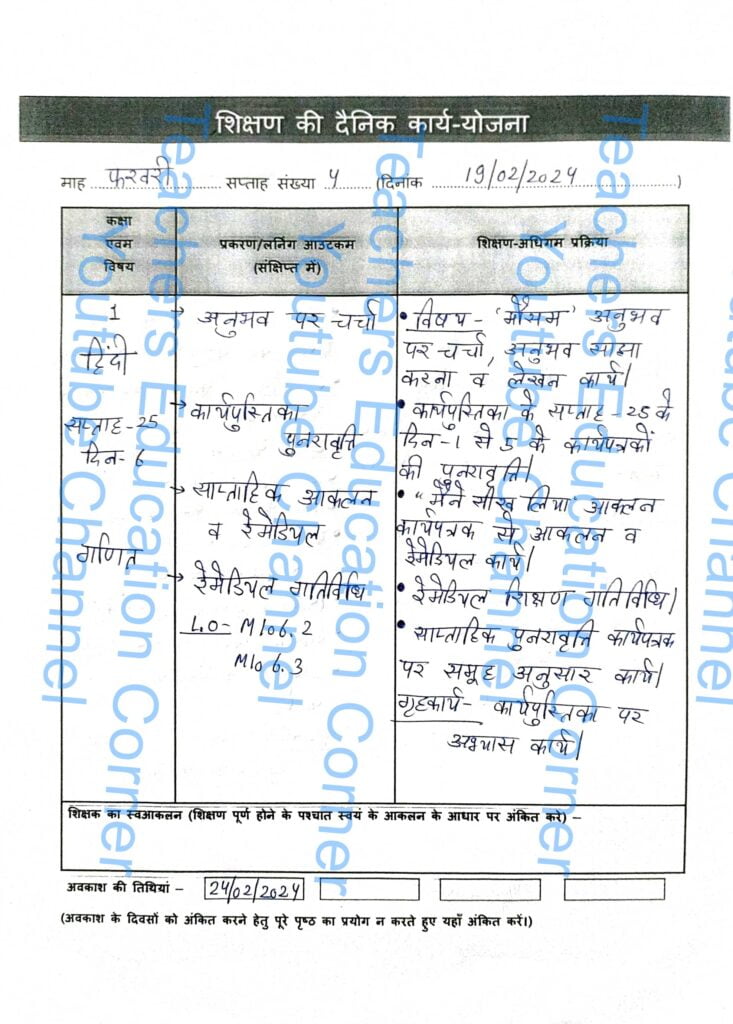 शिक्षण की दैनिक कार्य-योजना
माह फरवरी सप्ताह संख्या 4 (दिनांक 19/02/2024)
कक्षा
एवम
विषय
प्रकरण/लर्निंग आउटकम
(संक्षिप्त में)
शिक्षण-अधिगम प्रक्रिया
1
हिंदी
सप्ताह-25
दिन-6
गणित
→ अनुभव पर चर्चा
→ कार्यपुस्तिका
पुनरावृत्ति
→ साप्ताहिक आकलन
व रेमेडियल
→ रेमेडियल गतिविधि
LO- M106.2
M106.3
• विषय- 'मौसम' अनुभव
पर चर्चा, अनुभव साझा
करना व लेखन कार्य।
• कार्यपुस्तिका के सप्ताह-25 के
दिन-1 से 5 के कार्यपत्रकों
की पुनरावृत्ति।
• "मैंने सीख लिया" आकलन
कार्यपत्रक से आकलन व
रेमेडियल कार्य।
• रेमेडियल शिक्षण गतिविधि।
• साप्ताहिक पुनरावृत्ति कार्यपत्रक
पर समूह अनुसार कार्य।
गृहकार्य- कार्यपुस्तिका पर
अभ्यास कार्य।
शिक्षक का स्वआकलन (शिक्षण पूर्ण होने के पश्चात स्वयं के आकलन के आधार पर अंकित करें) –
अवकाश की तिथियां – 24/02/2024
(अवकाश के दिवसों को अंकित करने हेतु पूरे पृष्ठ का प्रयोग न करते हुए यहाँ अंकित करें।)
Teachers Education Corner
Youtube Channel
Teachers Education Corner
Youtube Channel
Teachers Education Corner
Youtube Channel